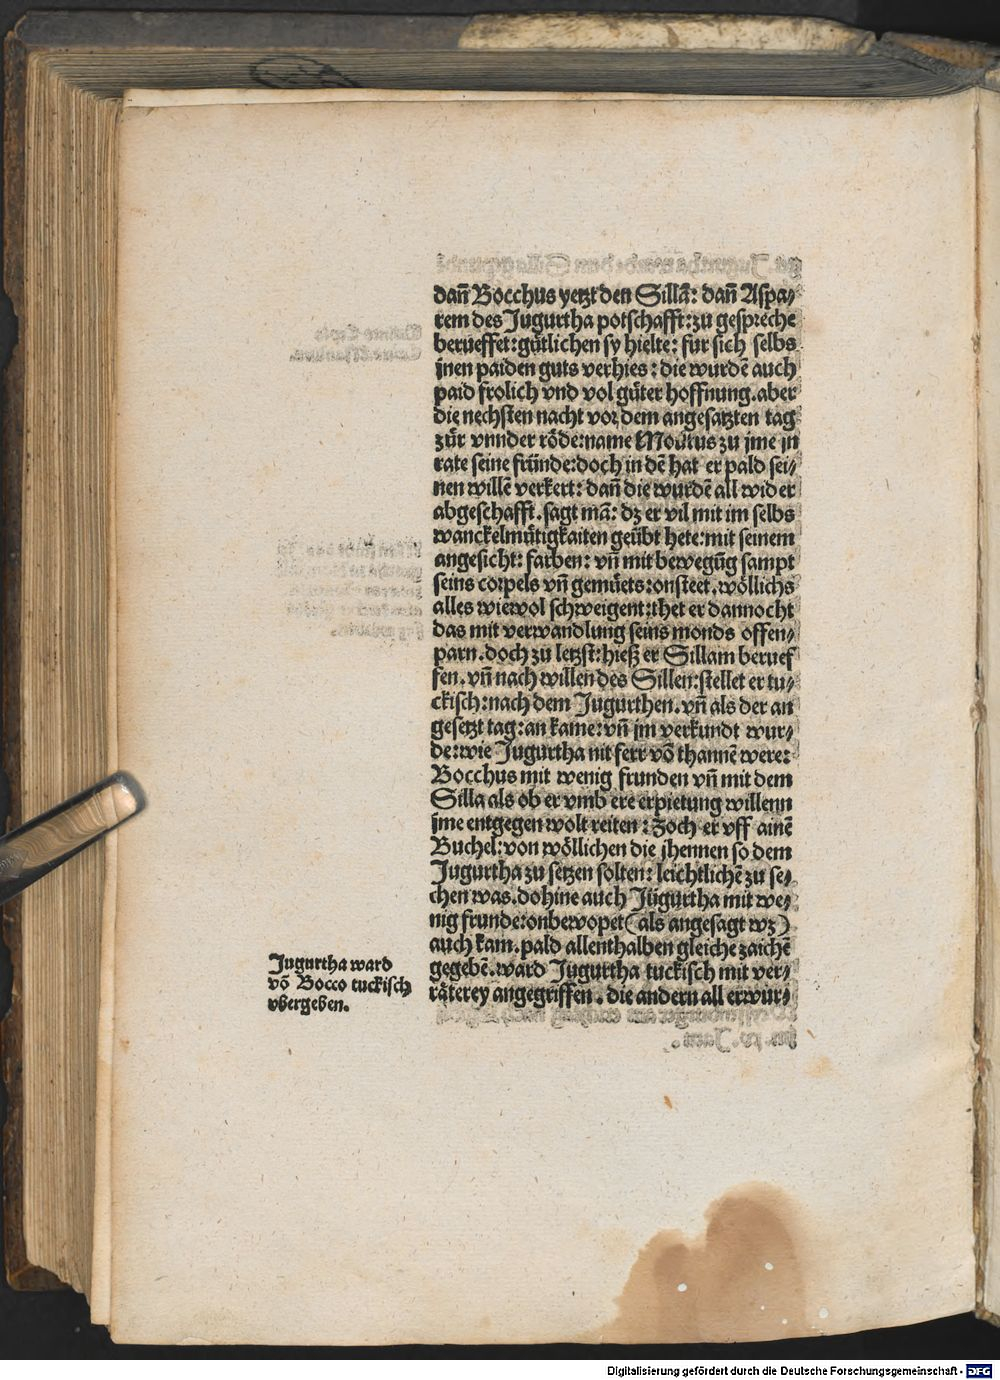 dañ Bocchus yetzt den Sillā: dañ Aspa⸗
rem des Jugurtha potschafft: zu gespreche
berueffet: gůtlichen sy hielte: fur sich selbs
jnen paiden guts verhies: die wurdē auch
paid frolich vnd vol gůter hoffnung. aber
die nechsten nacht vor dem angesatzten tag
zůr vnnder rőde: name Mourus zu jme jn
rate seine fründe: doch in dē hat er pald sei⸗
nen willē verkert: dañ die wurdē all wider
abgeschafft. sagt mā: dz er vil mit im selbs
wanckelmůtigkaiten geůbt hete: mit seinem
angesicht: farben: vñ mit bewegūg sampt
seins corpels vñ gemůets: onsteet. wőllichs
alles wiewol schweigent: thet er dannocht
das mit verwandlung seins monds offen⸗
parn. doch zu letzst: hieß er Sillam beruef
fen. vñ nach willen des Sillen: stellet er tu⸗
ckisch: nach dem Jugurthen. vñ als der an
gesetzt tag: an kame: vñ jm verkundt wur⸗
de: wie Jugurtha nit ferr võ thannē were:
Bocchus mit wenig frunden vñ mit dem
Silla als ob er vmb ere erpietung willenn
jme entgegen wolt reiten: Zoch er vff ainē
Buchel: von wőllichen die jhennen so dem
Jugurtha zu setzen solten: leichtlichē zu se⸗
chen was. dohine auch Jůgurtha mit we⸗
nig frunde: onbewopet (als angesagt wz)
auch kam. pald allenthalben gleiche zaichē
gegebē. ward Jugurtha tuckisch mit ver⸗
räterey angegriffen. die andern all erwur⸗
Jugurtha ward
võ Bocco tuckisch
vbergeben.
Digitalisierung gefördert durch die Deutsche Forschungsgemeinschaft - DFG